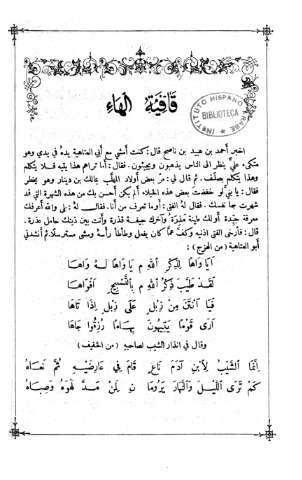 قافية الهاء
INSTITUTO HISPANO ARABE
BIBLIOTECA
اخبر أحمد بن عبيد بن ناصح قال: كنت أمشي مع أبي العتاهية يده في يدي وهو
متكىء عليّ ينظر الى الناس يذهبون ويجيئون. فقال: أما تراهم هذا يتيه فلا يتكلم
وهذا يتكلم بصلف. ثم قال لي: مرّ بعض أولاد المهلّب بمالك بن دينار وهو يخطر
فقال: يا بني لو خفضت بعض هذه الخيلاء ألم يكن أحسن بك من هذه الشهرة التي قد
شهرت بها نفسك. فقال له الفتى: أوما تعرف من أنا. فقال له: بلى والله أعرفك
معرفة جيدة أولك طينة مذرة وآخرك جيفة قذرة وأنت بين ذينك حامل عذرة.
قال: فأرخى الفتى أذنيه وكفّ عمّا كان يفعل وطأطأ رأسه ومشى مسترسلًا. ثم أنشدني
أبو العتاهية (من الهزج):
أيا واها لذكر الله م يا واها له واها
لقد طيّب ذكر الله م بالتسبيح أفواها
فيا أنتن من زبل على زبل إذا تاها
أرى قوما يتيهون بهاءا رزقوا جاها
وقال في انذار الشيب لصاحبه (من الخفيف)
إنما الشيب لابن آدم ناع قام في عارضيه ثم نعاه
كم ترى الليل والنهار يدومان لمن مد لهوه وصباه